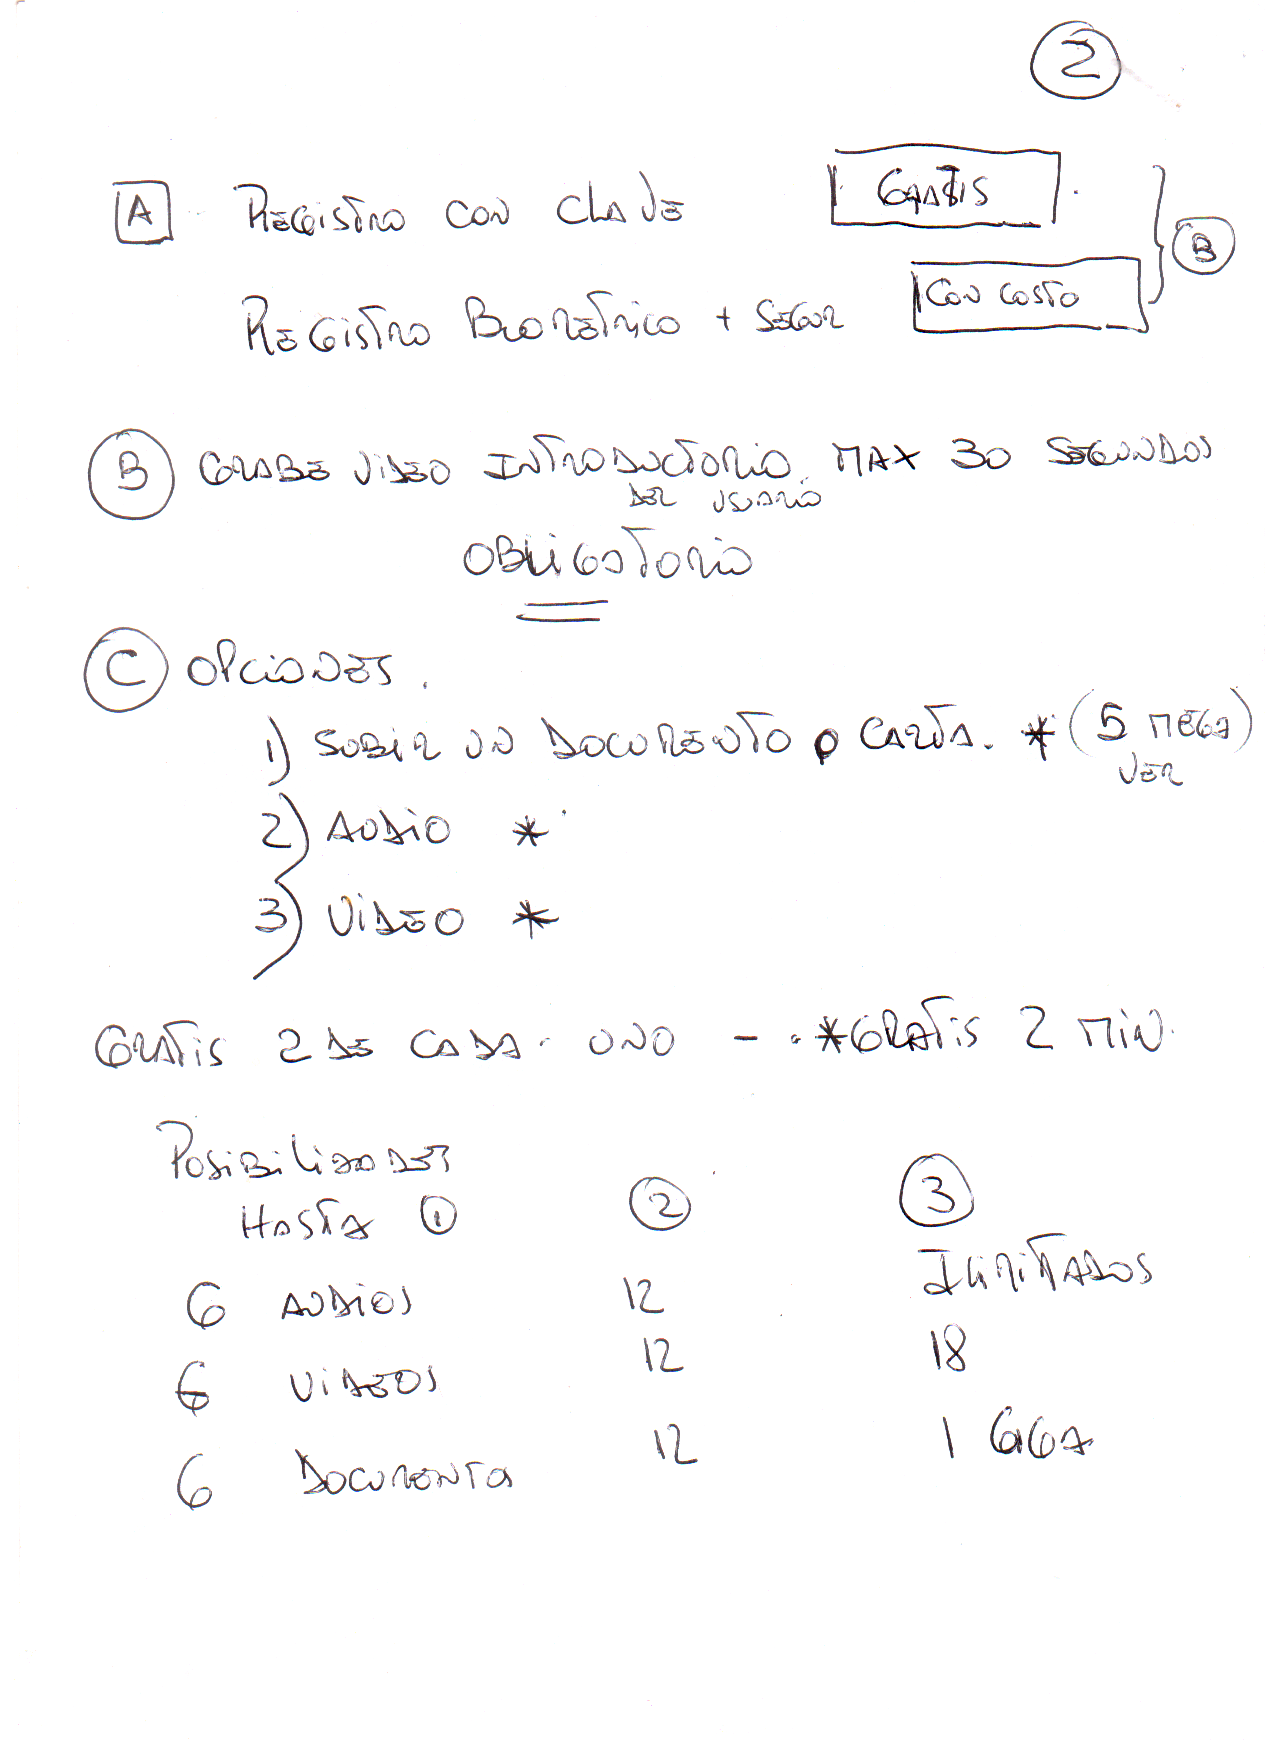 2
A REGISTRO CON CLAVE GRATIS
REGISTRO BIOMETRICO + SEGUR CON COSTO B
B GRABE VIDEO INTRODUCTORIO MAX 30 SEGUNDOS
DEL USUARIO
OBLIGATORIO
C OPCIONES.
1) SUBIR UN DOCUMENTO O CARTA. * (5 MEGA)
VER
2) AUDIO *
3) VIDEO *
GRATIS 2 DE CADA UNO - *GRATIS 2 MIN.
POSIBILIDADES
HASTA 1 2 3
6 AUDIOS 12 ILIMITADOS
6 VIDEOS 12 18
6 DOCUMENTOS 12 1 GIGA